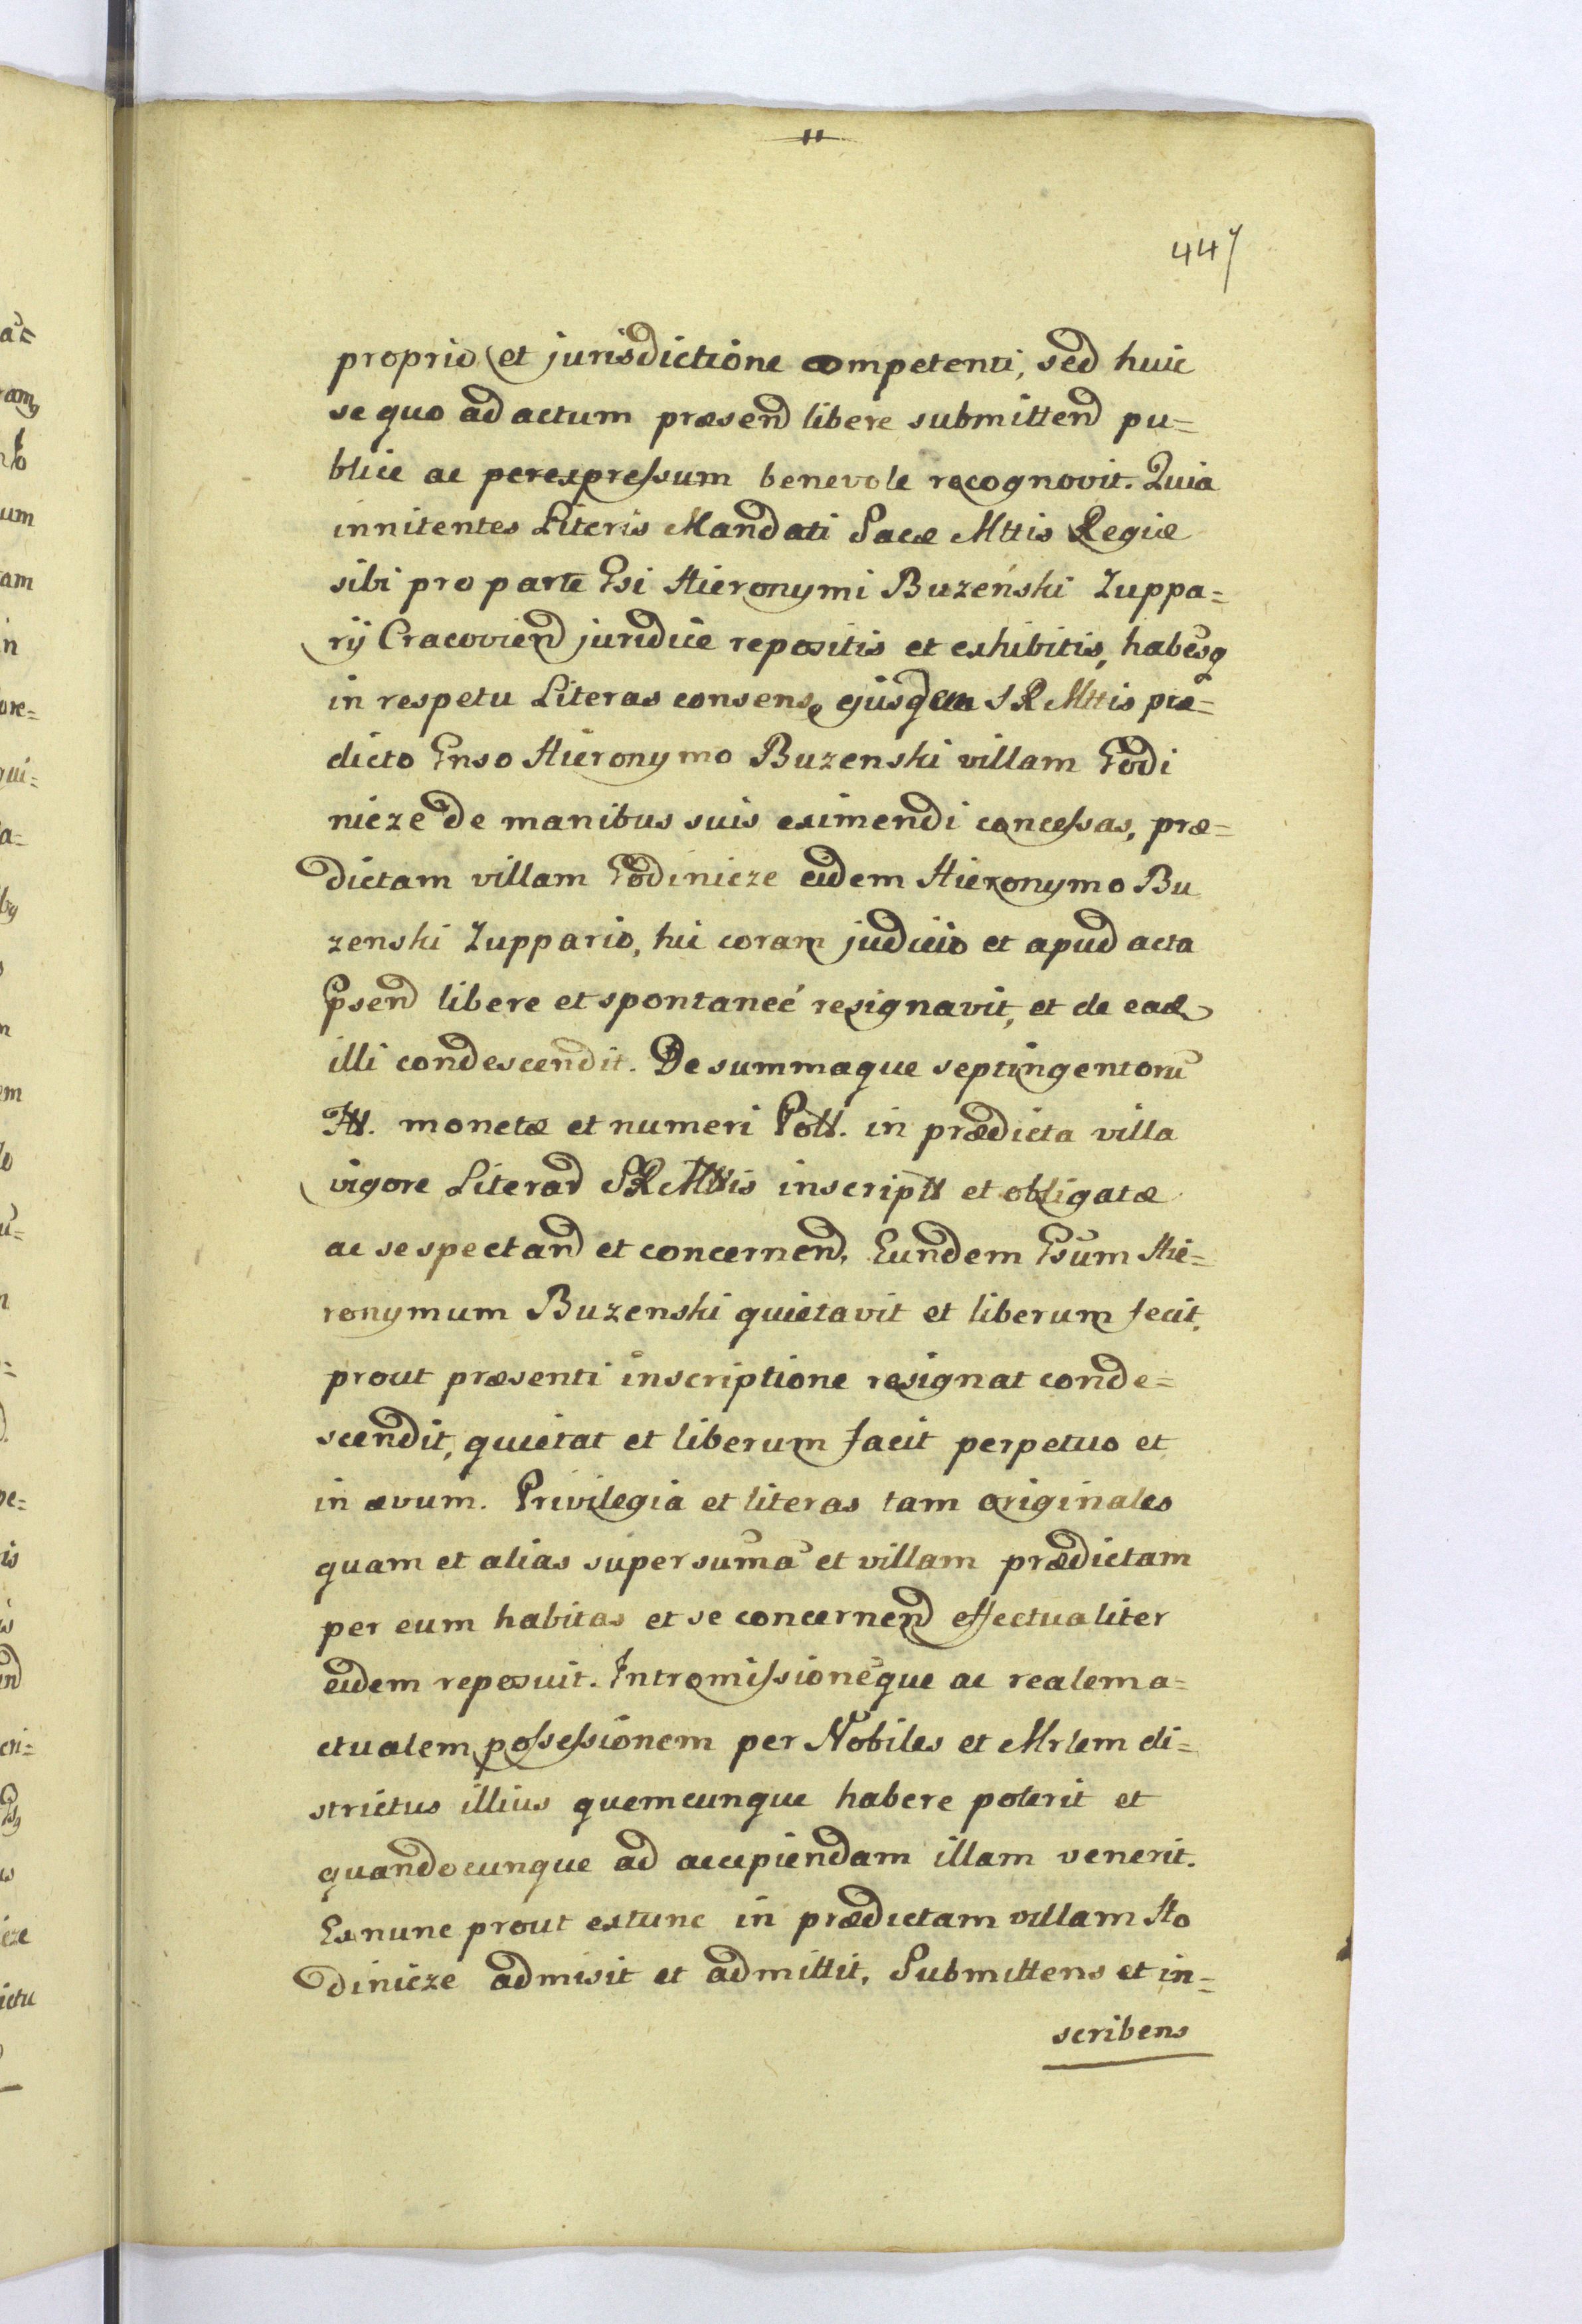 447
proprio et jurisdictione competenti, sed huic
se quo ad actum præsend libere submittend pu=
blice ac perexpressum benevole recognovit. Quia
innitentes Literis Mandati Sacæ Mttis Regiæ
sibi pro parte Gsi Hieronymi Buzeński Zuppa=
rij Cracovien juridice repositis et exhibitis, habēsq
in respetu Literas consens, ejusdem S R Mttis præ=
dicto Gnso Hieronymo Buzenski villam Godi
nicze de manibus suis eximendi concessas, præ=
dictam villam Godinicze eidem Hieronymo Bu
zenski Zuppario, hic coram judicio et apud acta
psend libere et spontaneé resignavit, et de ead
illi condescendit. De summaque septingentorū
fll. monetæ et numeri Poll. in prædicta villa
vigore Literar SR Mttis inscriptt et obligatæ
ac se spectand et concernend, Eundem Gsum Hie=
ronymum Buzenski quietavit et liberum fecit,
prout præsenti inscriptione resignat conde=
scendit, quietat et liberum facit perpetuo et
in ævum. Privilegia et literas tam originales
quam et alias super sumā et villam prædictam
per eum habitas et se concernend effectualiter
eidem reposuit. Intromissionēque ac realem a=
ctualem possessionem per Nobiles et Mrlem di=
strictus illius quemcunque habere poterit et
quandocunque ad accipiendam illam venerit.
Exnunc prout extunc in prædictam villam Ho
dinicze admisit et admittit, Submittens et in=
scribens